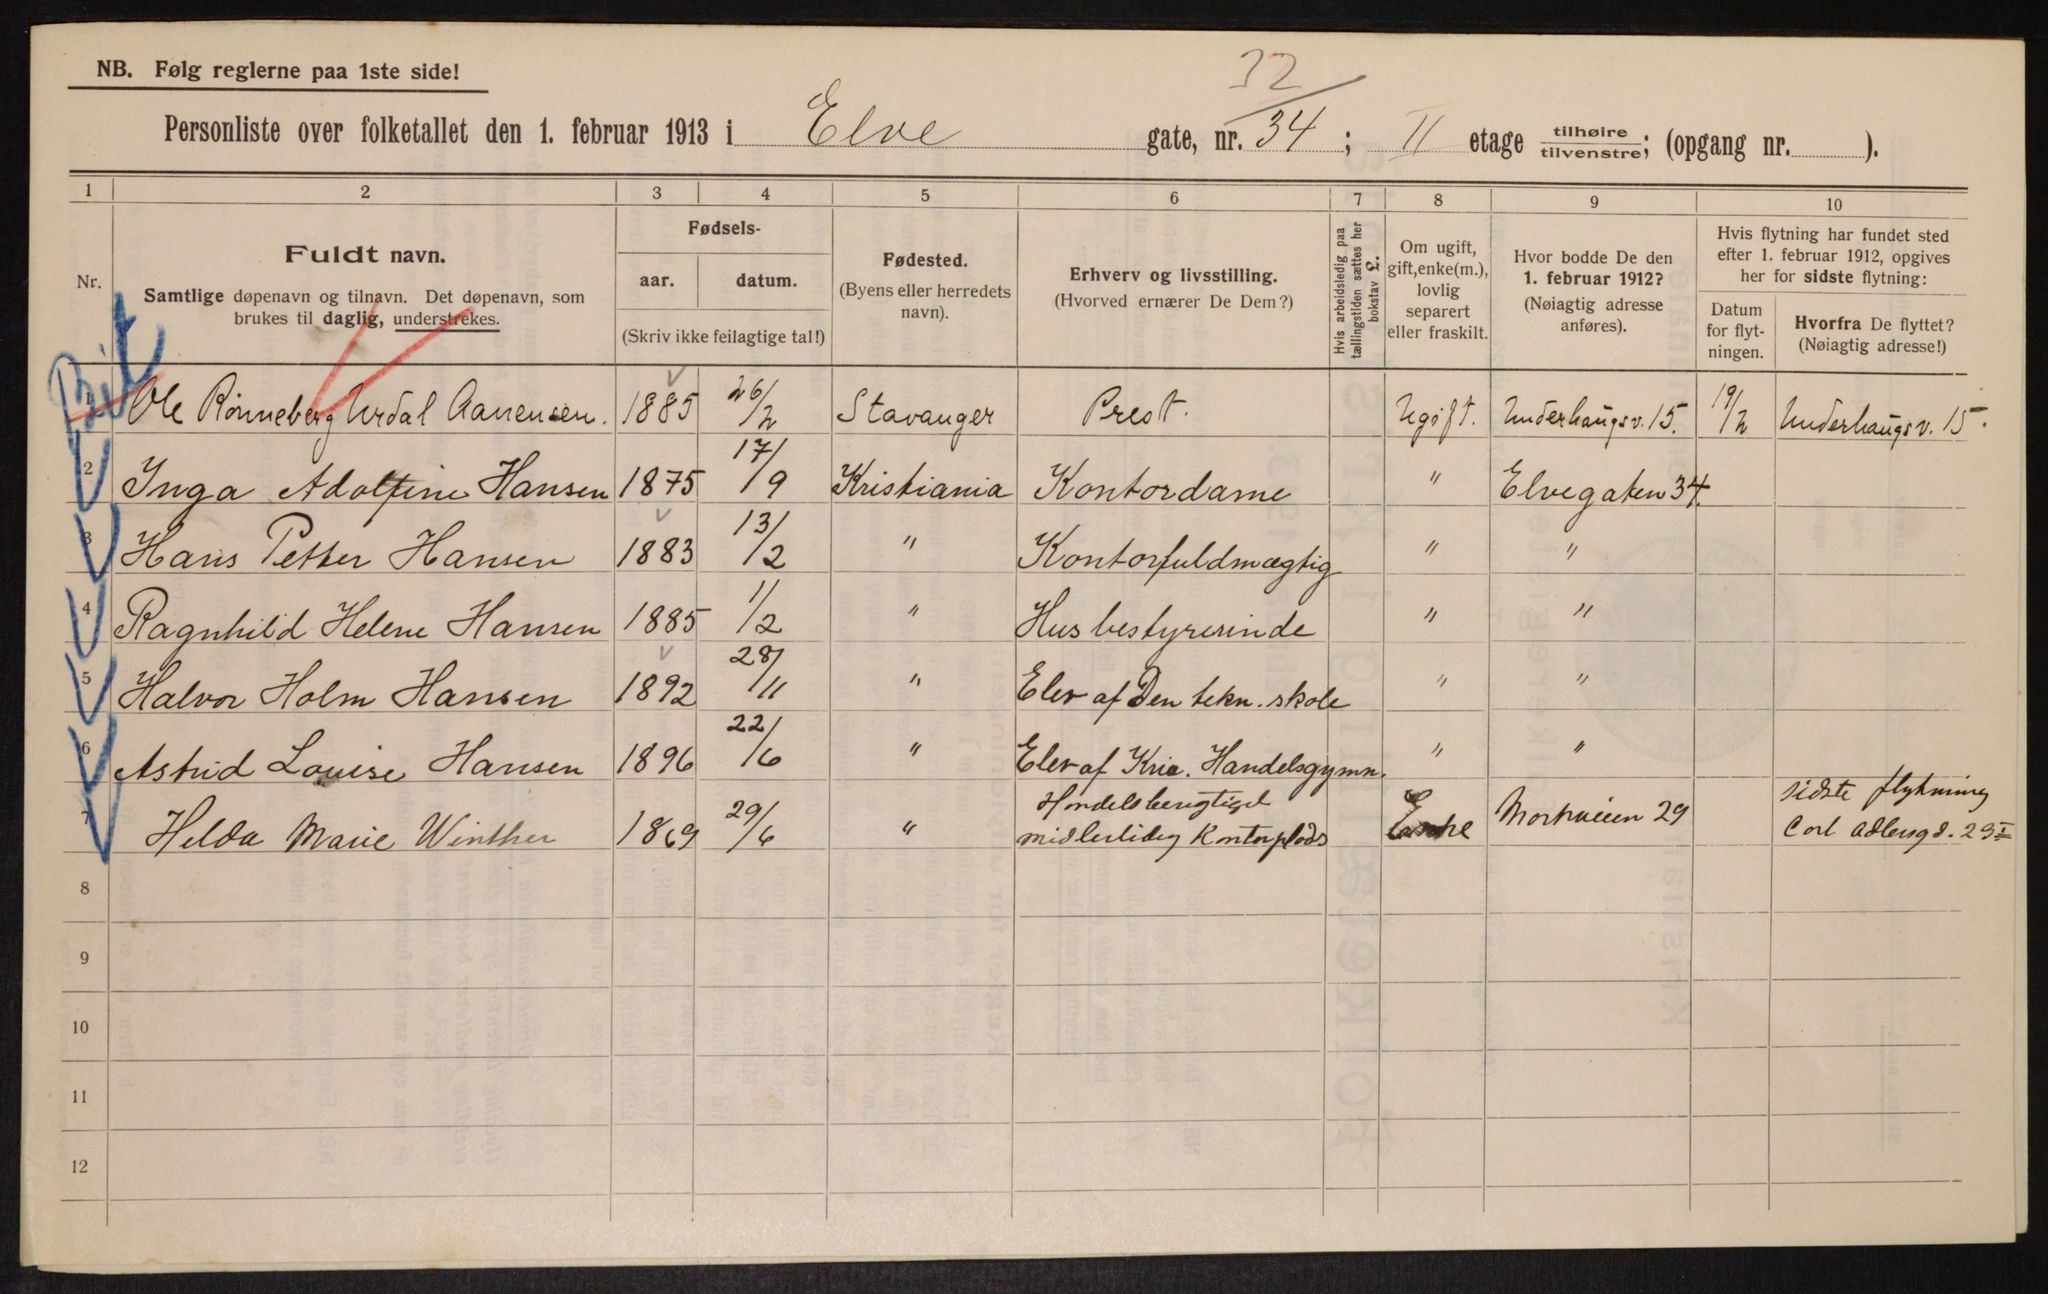 32
NB. Følg reglerne paa 1ste side!
Personliste over folketallet den 1. februar 1913 i Elve gate, nr. 34; II etage tilhøire / tilvenstre; (opgang nr. ).
1 2 3 4 5 6 7 8 9 10
Nr.
Fuldt navn.
Samtlige døpenavn og tilnavn. Det døpenavn, som
brukes til daglig, understrekes.
Fødsels-
aar.
datum.
(Skriv ikke feilagtige tal!)
Fødested.
(Byens eller herredets
navn).
Erhverv og livsstilling.
(Hvorved ernærer De Dem?)
Hvis arbeidsledig paa
tællingstiden sættes her
bokstav L.
Om ugift,
gift, enke(m.),
lovlig
separert
eller fraskilt.
Hvor bodde De den
1. februar 1912?
(Nøiagtig adresse
anføres).
Hvis flytning har fundet sted
efter 1. februar 1912, opgives
her for sidste flytning:
Datum
for flyt-
ningen.
Hvorfra De flyttet?
(Nøiagtig adresse!)
1 Ole Rønneberg Urdal Aanensen. 1885 26/2 Stavanger Prest. Ugift. Underhaugsv. 15. 19/2 Underhaugsv. 15.
2 Inga Adolfine Hansen 1875 17/9 Kristiania Kontordame " Elvegaten 34.
3 Hans Petter Hansen 1883 13/2 " Kontorfuldmægtig " "
4 Ragnhild Helene Hansen 1885 1/2 " Husbestyrerinde " "
5 Halvor Holm Hansen 1892 28/11 " Elev af Den tekn. skole " "
6 Astrid Louise Hansen 1896 22/6 " Elev af Kria. Handelsgymn. " "
7 Helda Marie Winther 1869 29/6 " Handelsberigtiget
midlertidig Kontorplads Enke 29 sidste flytning
Carl Adlersgd. 23 I
8
9
10
11
12